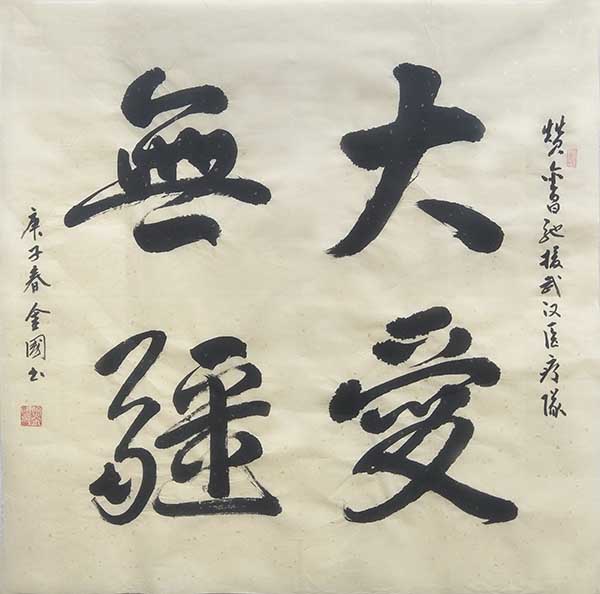 赞驰援武汉医疗隊
大愛
無疆
庚子春金國书